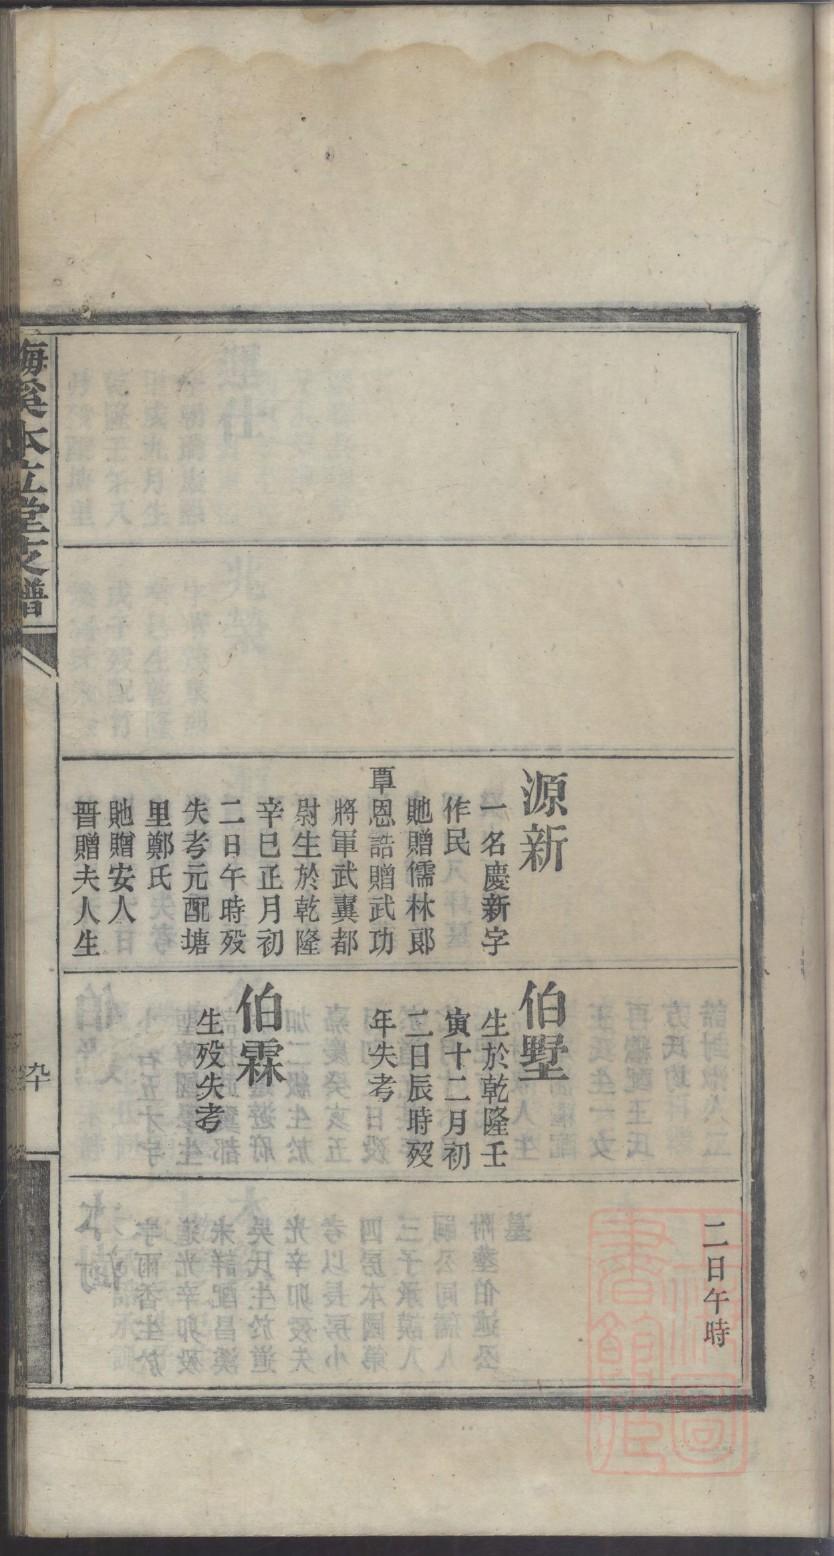 二日午時
源新
一名慶新字
作民
貤贈儒林郎
覃恩誥贈武功
將軍武翼都
尉生於乾隆
辛巳正月初
二日午時歿
失考元配塘
里鄭氏
貤贈安人
晉贈夫人生
伯墅
生於乾隆壬
寅十二月初
二日辰時歿
年失考
伯霖
生歿失考
梅溪本立堂支譜